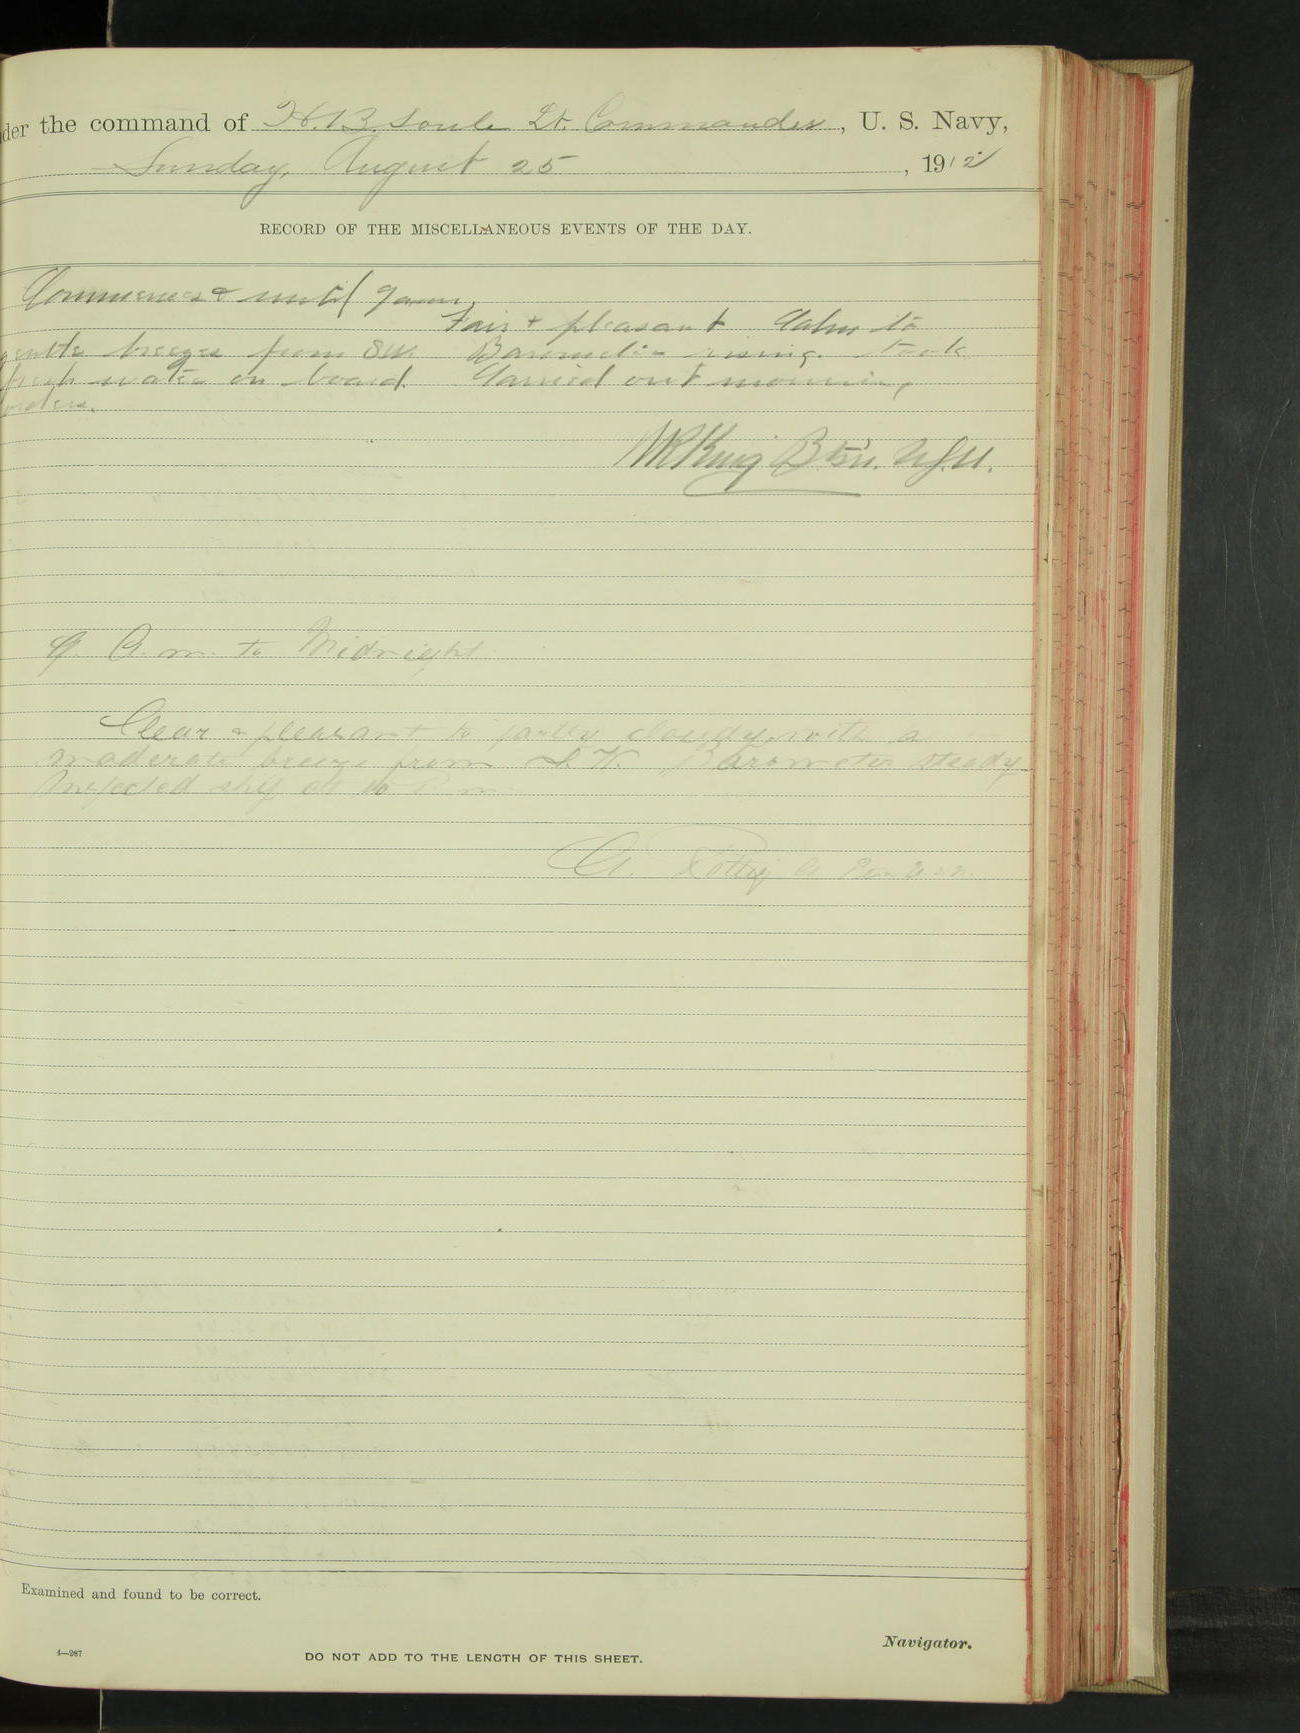 der the command of H. B. Soule Lt. Commander, U. S. Navy,
Sunday, August 25, 1912
RECORD OF THE MISCELLANEOUS EVENTS OF THE DAY.
Commences & until 9 am,
Fair & pleasant Calm to
gentle breeze from SW. Barometer rising. Took
fresh water on board. Carried out morning
orders.
W R King Btsn. U.S.N.
9. A. m. to Midnight
Clear & pleasant to partly cloudy with a
moderate breeze from S. W. Barometer steady
Inspected ship at 10 P. m
A.
Examined and found to be correct.
Navigator.
4—287
DO NOT ADD TO THE LENGTH OF THIS SHEET.